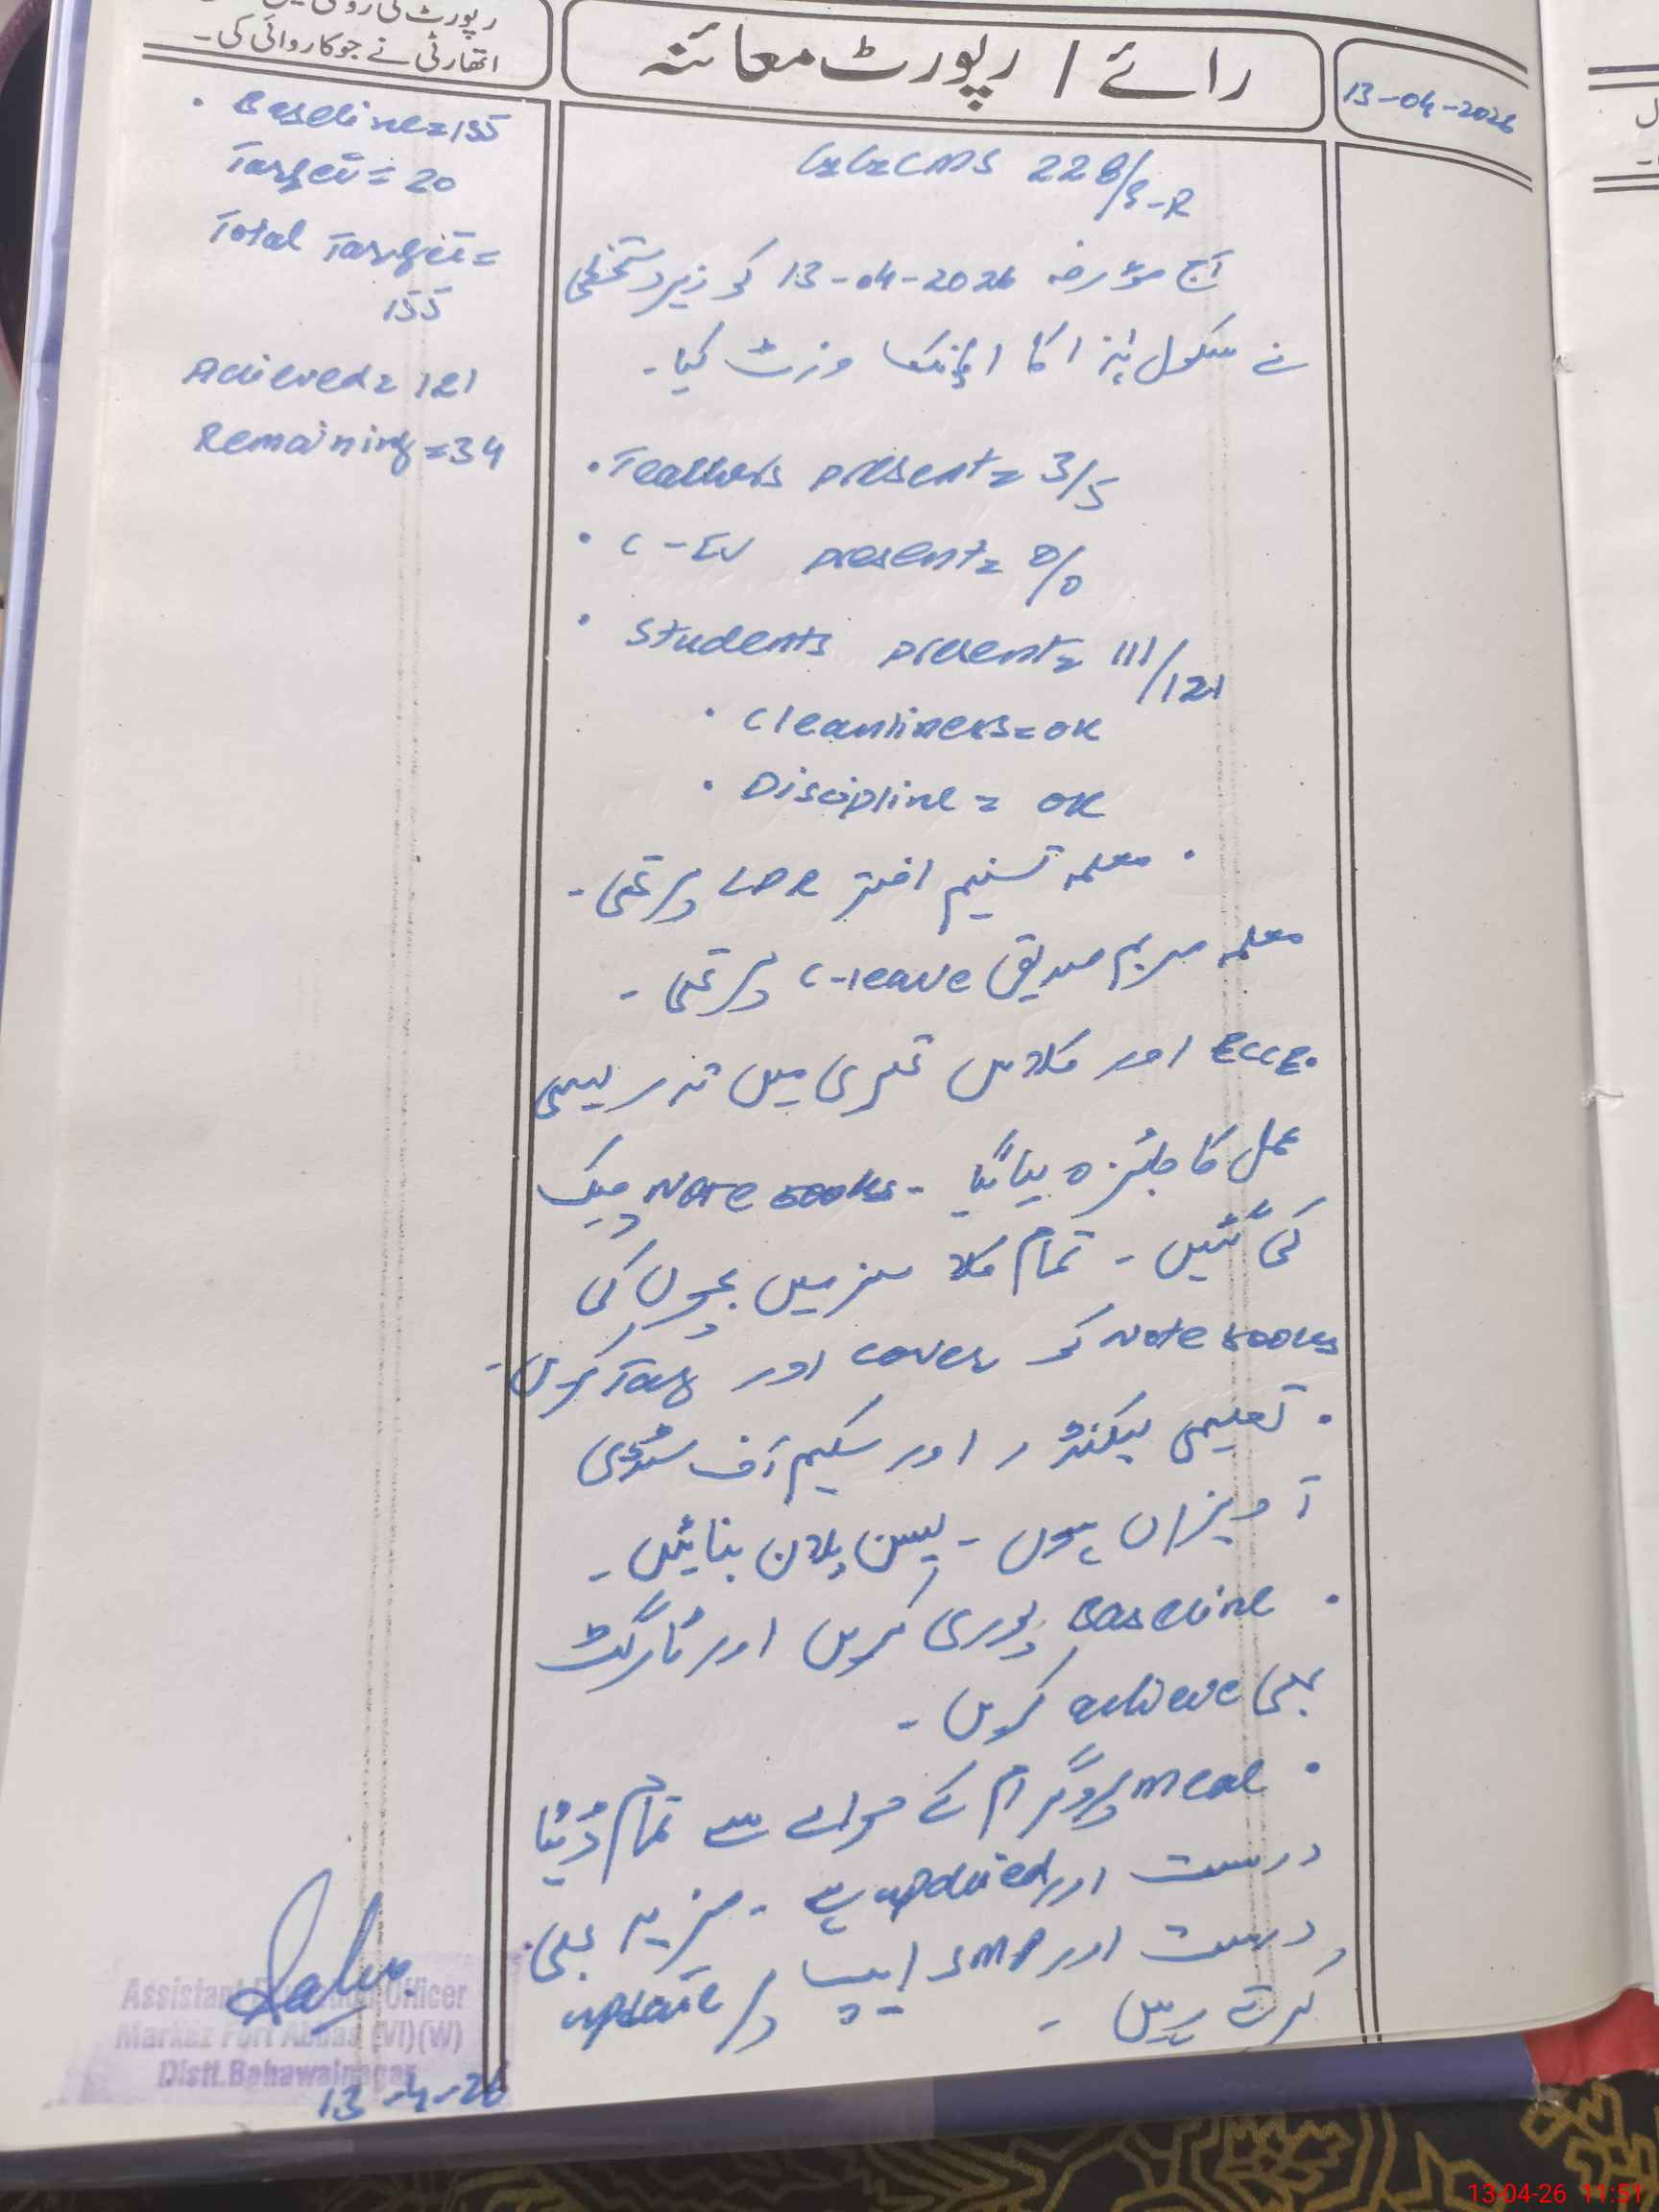 رپورٹ کی روشنی میں
اتھارٹی نے جو کاروائی کی۔
رائے / رپورٹ معائنہ
13-04-2026
GGCMS 228/9-R
آج مورخہ 13-04-2026 کو زیر دستخطی
نے سکول ہٰذا کا اچانک وزٹ کیا۔
. Teachers present = 3/5
. C-IV present = 0/0
. Students present = 111/121
. Cleanliness = OK
. Discipline = OK
. معلمہ تسنیم اختر LDR پر تھی۔
معلمہ مریم صدیق C-leave پر تھی۔
.ECCE اور کلاس تھری میں تدریسی
عمل کا جائزہ لیا گیا۔ Note books چیک
کی گئیں۔ تمام کلاسز میں بچوں کی
Note books کو cover اور Tag کریں۔
. تعلیمی کیلنڈر اور سکیم آف سٹڈی
آویزاں ہوں۔ لیسن پلان بنائیں۔
. Baseline پوری کریں اور ٹارگٹ
بھی achieve کریں۔
. meal پروگرام کے حوالے سے تمام ڈیٹا
درست اور updated ہے۔ مزید بھی
درست اور SMP ایپ پر update
کرتے رہیں۔
. Baseline = 155
Target = 20
Total Target =
155
Achieved = 121
Remaining = 34
Assistant Education Officer
Markaz Fort Abbas (VI)(W)
Distt. Bahawalnagar
13-4-26
13-04-26 11:51